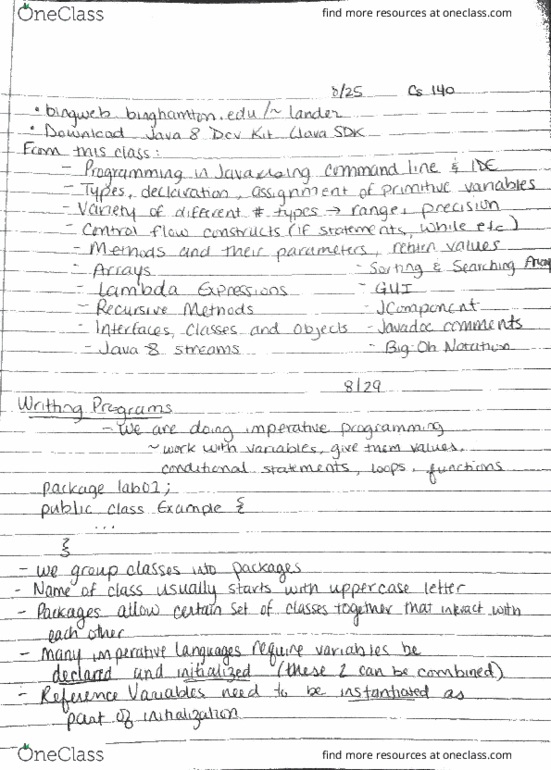 OneClass
find more resources at oneclass.com
8/25 CS 140
• bingweb.binghamton.edu/~lander
• Download Java 8 Dev Kit (Java SDK
From this class:
- Programming in Java using command line & IDE
- Types, declaration, assignment of primitive variables
- Variety of different # types → range, precision
- Control flow constructs (if statements, while etc)
- Methods and their parameters, return values
- Arrays
- Sorting & Searching Array
- Lambda Expressions
- GUI
- Recursive Methods
- JComponent
- Interfaces, Classes and Objects
- Javadoc comments
- Java 8 streams
- Big-Oh Notation
8/29
Writing Programs
- We are doing imperative programming
~ work with variables, give them values,
conditional statements, loops, functions
package lab01;
public class Example {
...
}
- we group classes into packages
- Name of class usually starts with uppercase letter
- Packages allow certain set of classes together that interact with
each other
- Many imperative languages require variables be
declared and initialized (these 2 can be combined)
- Reference Variables need to be instantiated as
part of initialization
OneClass
find more resources at oneclass.com